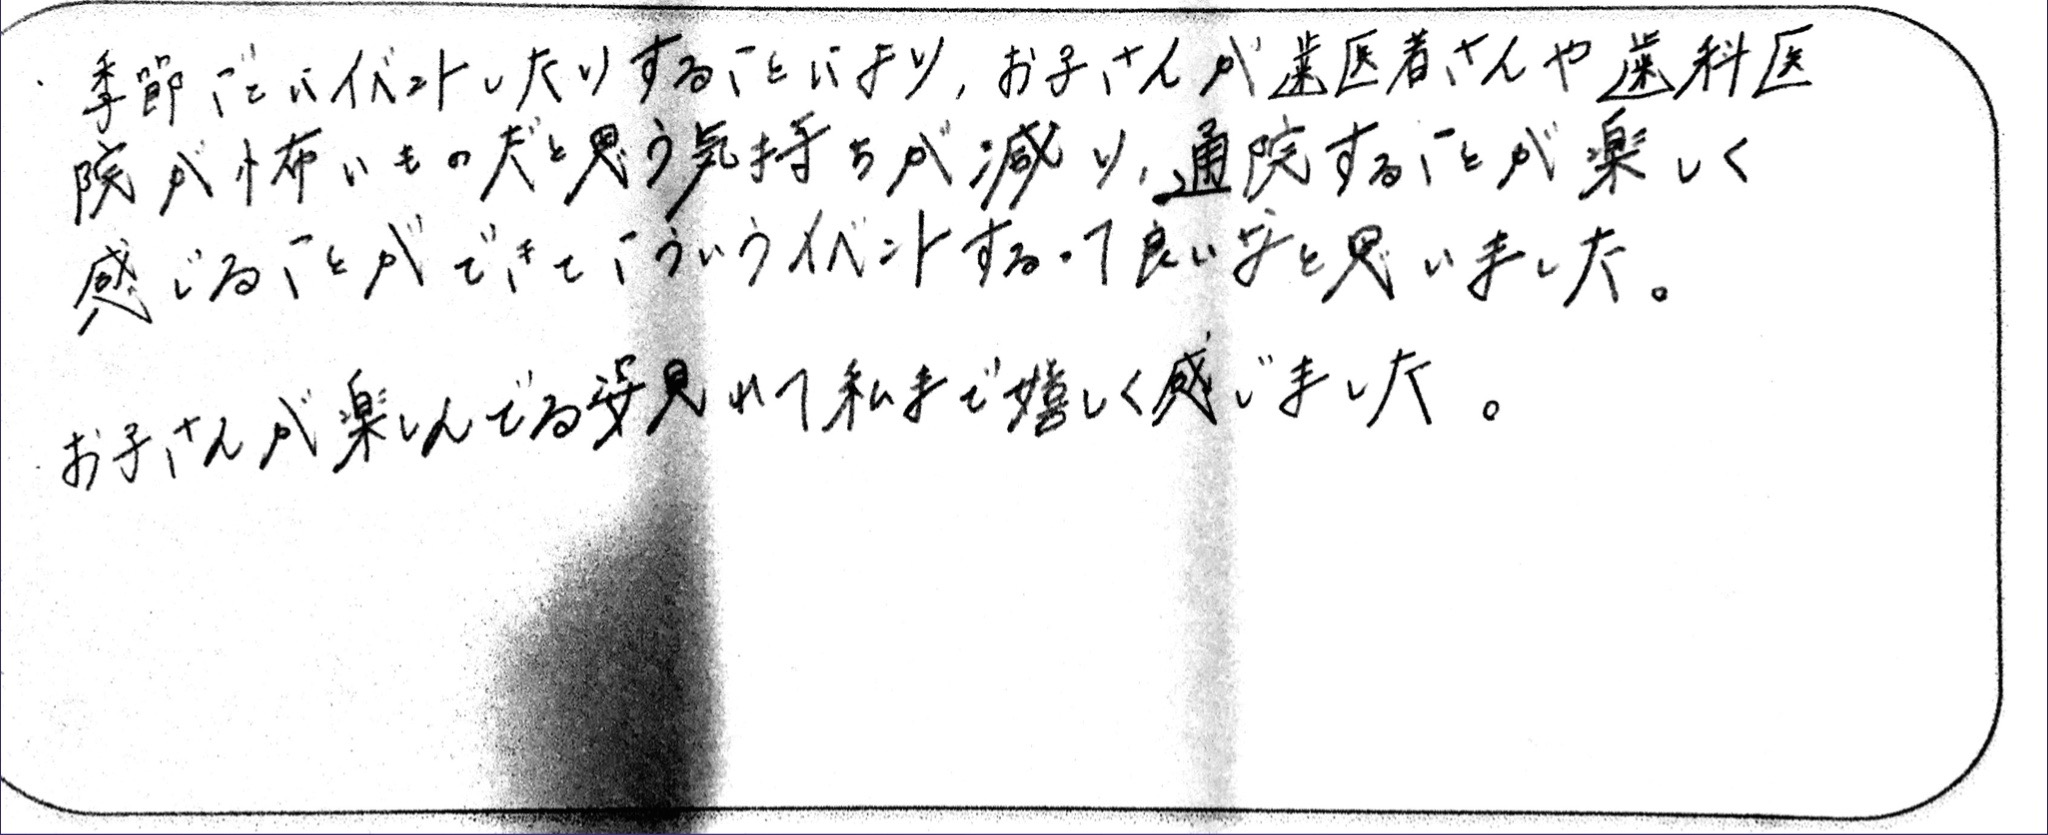 ・季節ごとにイベントしたりすることにより、お子さんが歯医者さんや歯科医
院が怖いものだと思う気持ちが減り、通院することが楽しく
感じることができてこういうイベントするって良いなと思いました。
・お子さんが楽しんでる姿見れて私まで嬉しく感じました。